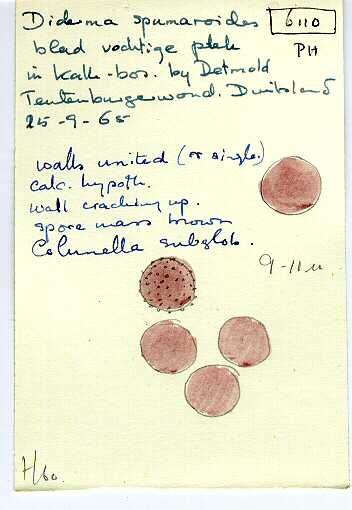 Diderma spumaroides
6110
blad vochtige plek
PH
in Kalk-bos. by Detmold
Teutenburgerwoud. Duitsland
25-9-65
walls united (or single.)
calc. hypoth.
wall cracking up.
spore mass brown
Columella subglob.
9-11 u